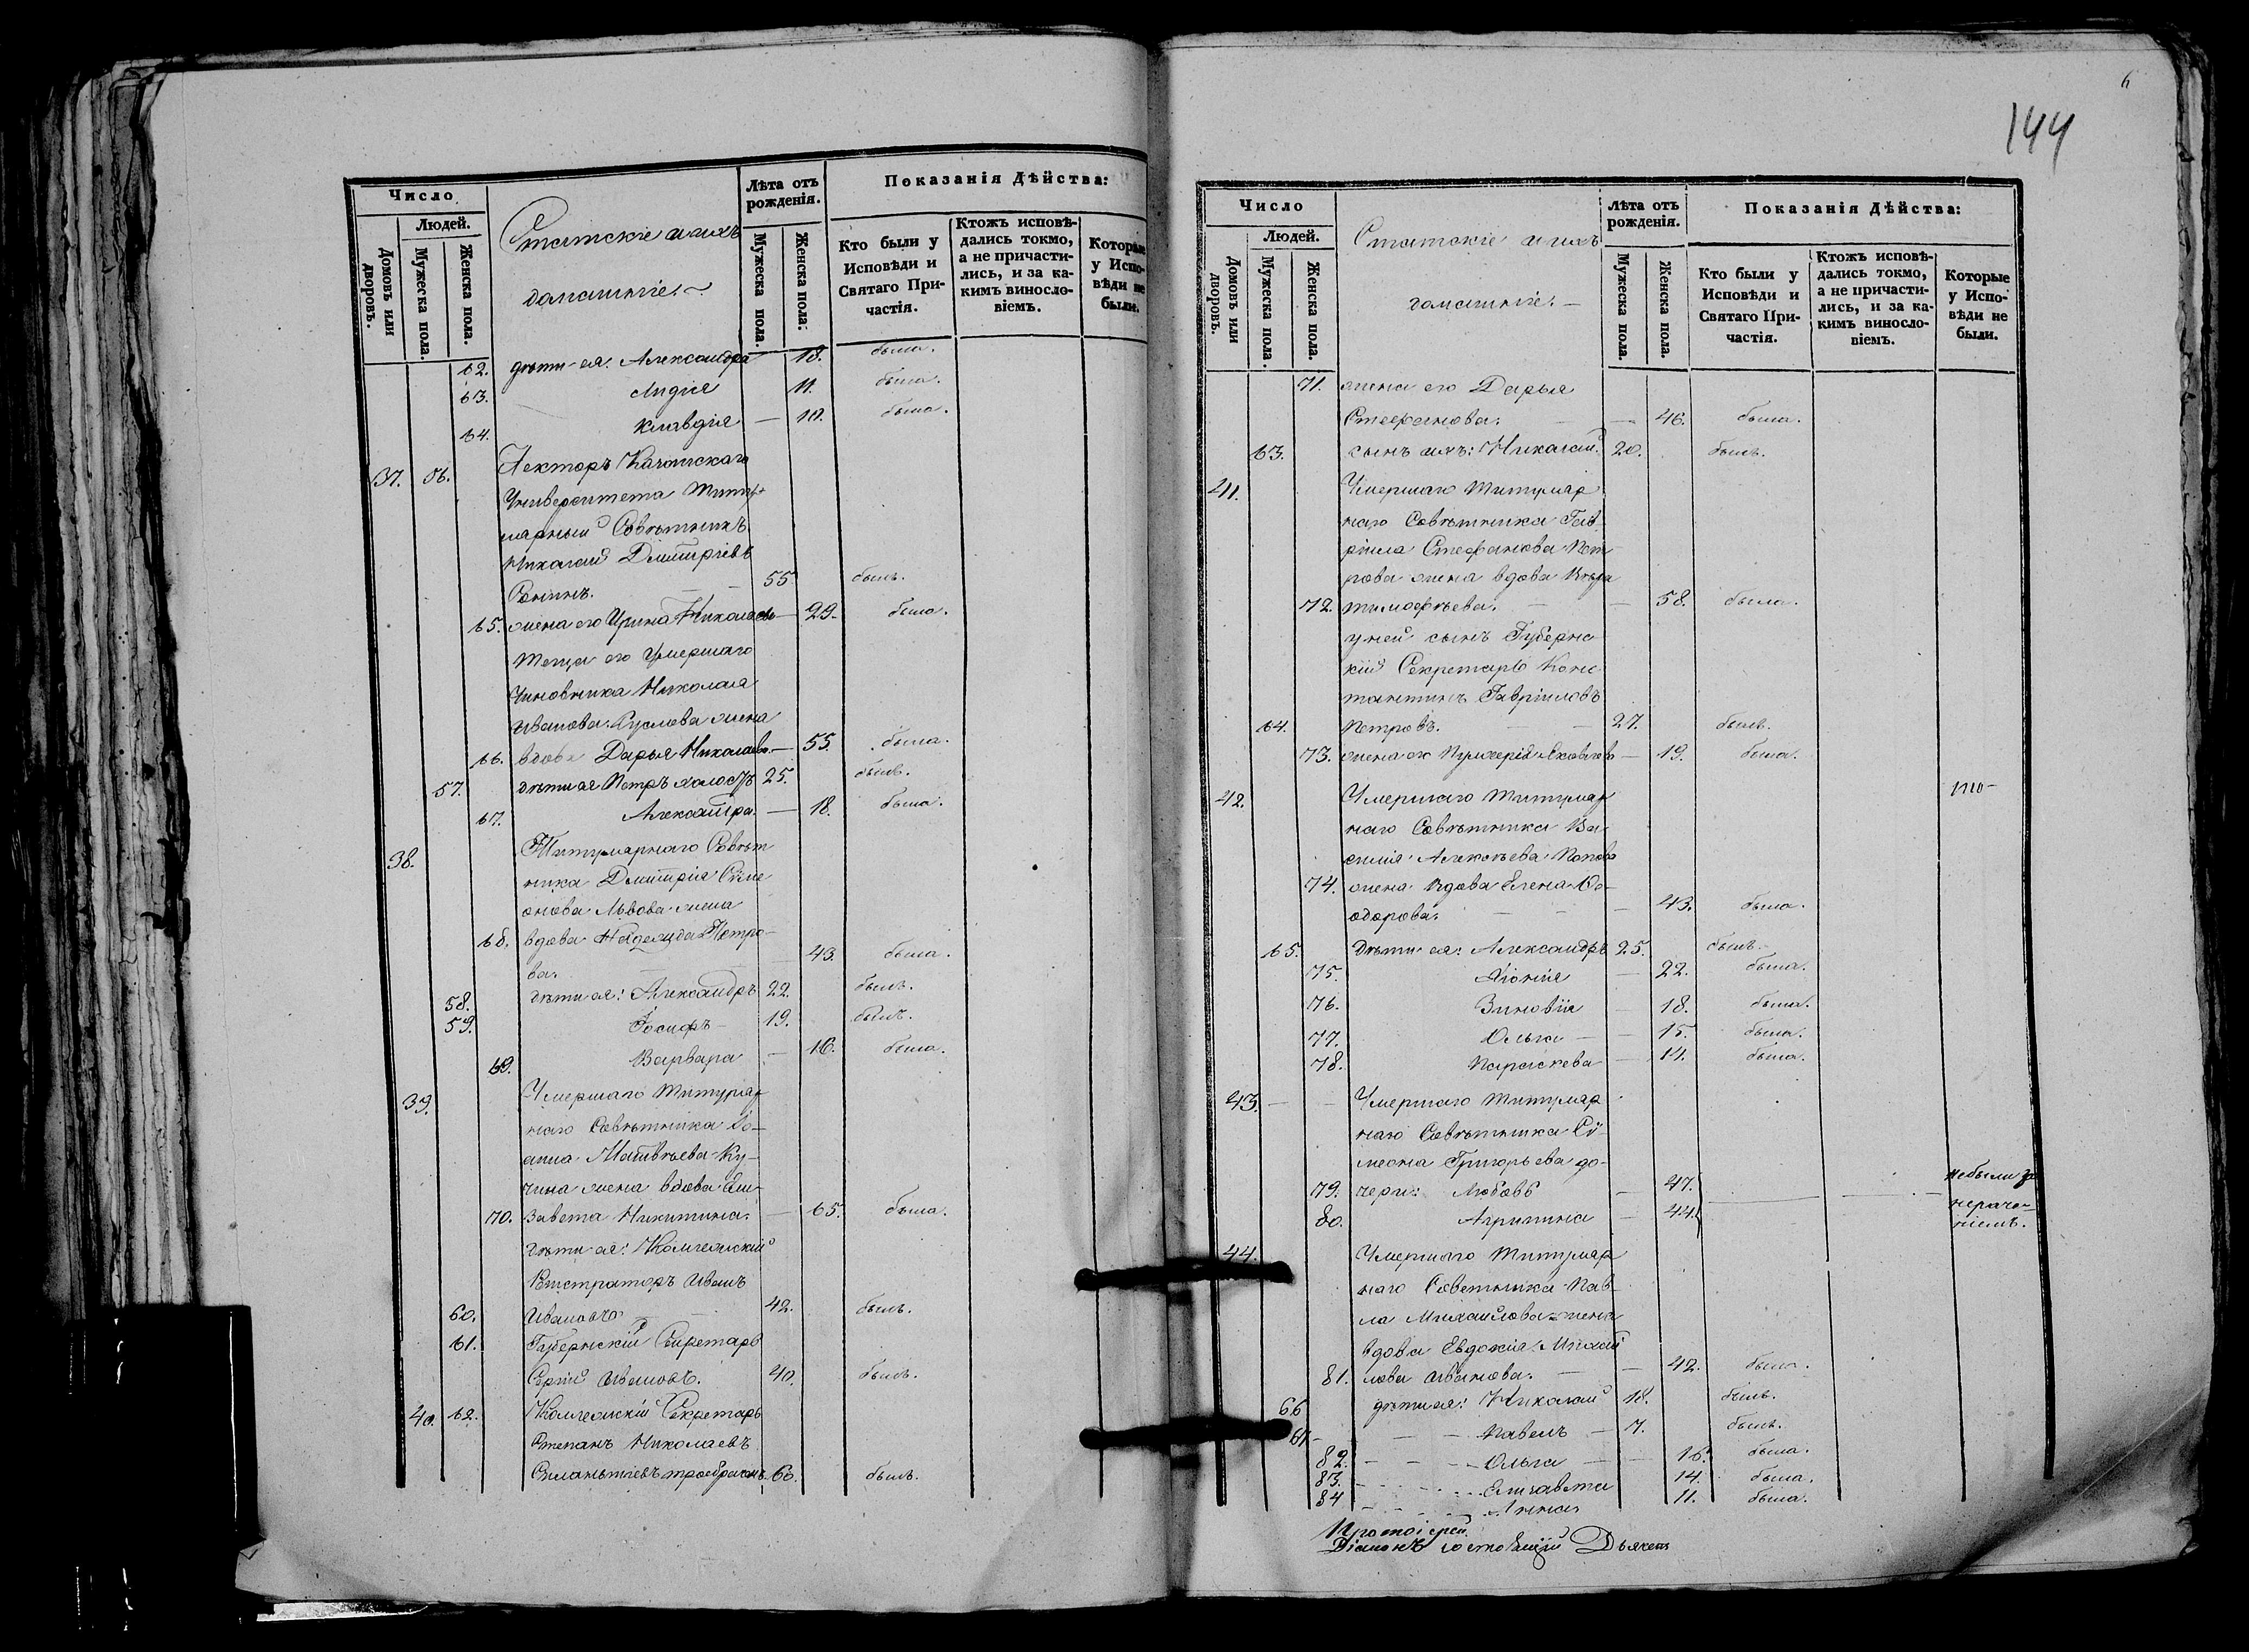 Число
Людей.
Домовъ или дворовъ.
Мужеска пола.
Женска пола.
Статскіе и ихъ
домашніе.
Лѣта отъ рожденія.
Мужеска пола.
Женска пола.
Показанія Дѣйства:
Кто были у Исповѣди и Святаго Причастія.
Ктожъ исповѣдались токмо, а не причастились, и за какимъ винословіемъ.
Которые у Исповѣди не были.
62. дѣти ея: Александра 18. была.
63. Лидія 11. была.
64. Клавдія — 10. была.
37. 56. Лекторъ Казанскаго
Университета Титу-
лярный Совѣтникъ
Николай Дмитріевъ
55 былъ.
65. жена его Ирина Николаева — 29. была.
Теща его Умершаго
Чиновника Николая
Иванова жена
66. вдова Дарья Николаева — 55. была.
57. дѣти ея Петръ холостъ 25. былъ.
67. Александра — 18. была.
38. Титулярнаго Совѣт
ника Дмитрія Симе
онова Львова жена
68. вдова Надежда Петро-
ва. 43. была.
58. дѣти ея: Александръ 22. былъ.
59. Іосифъ — 19. былъ.
69. Варвара — 16. была.
39. Умершаго Титуляр
наго Совѣтника Іо-
анна Матвѣева Ку-
жена вдова Ели-
70. завета Никитина. — 65. была.
дѣти ея: Коллежскій
Регистраторъ Иванъ
60. Ивановъ — 42. былъ.
61. Губернскій Секретарь
Сергій Ивановъ. 40. былъ.
40. 62. Коллежскій Секретарь
Степанъ Николаевъ
60. былъ.
6
144
Число
Людей.
Домовъ или дворовъ.
Мужеска пола.
Женска пола.
Статскіе и ихъ
домашніе. —
Лѣта отъ рожденія.
Мужеска пола.
Женска пола.
Показанія Дѣйства:
Кто были у Исповѣди и Святаго Причастія.
Ктожъ исповѣдались токмо, а не причастились, и за какимъ винословіемъ.
Которые у Исповѣди не были.
71. жена его Дарья
Стефанова. — 46. была.
63. сынъ ихъ: Николай. 20. былъ.
41. Умершаго Титуляр
наго Совѣтника Гав
ріила Стефанова Пет
рова жена вдова Вѣра
72. Тимофѣева. — 58. была.
у ней сынъ Губернс
кій Секретарь Конс
тантинъ Гавріиловъ
64. Петровъ. — 27. былъ.
73. жена его Пульхерія Яковлева — 19. была.
42. Умершаго Титуляр
наго Совѣтника Ва
силія Алексѣева Попова
74. жена вдова Елена Ѳе-
одорова. — 43. была.
65. Дѣти ея: Александръ 25. былъ.
75. — 22. была.
76. Зиновія — 18. была.
77. Ольга — 15. была.
78. Параскева — 14. была.
43. Умершаго Титуляр
наго Совѣтника Си-
меона Григорьева до-
79. чери: Любовь — 47. не были за
80. Агрипина — 44. нераче-
ніемъ.
44. Умершаго Титуляр
наго Советника Пав-
ла Михайлова жена
вдова Евдокія Михай
81. лова Иванова. — 42. была.
66 дѣти ея: Николай 18. былъ.
67 — Павелъ — 7. былъ.
82. — Ольга — 16. была.
83. Елизавета 14. была.
84 Анна 11. была.
Протоіерей
Діаконъ